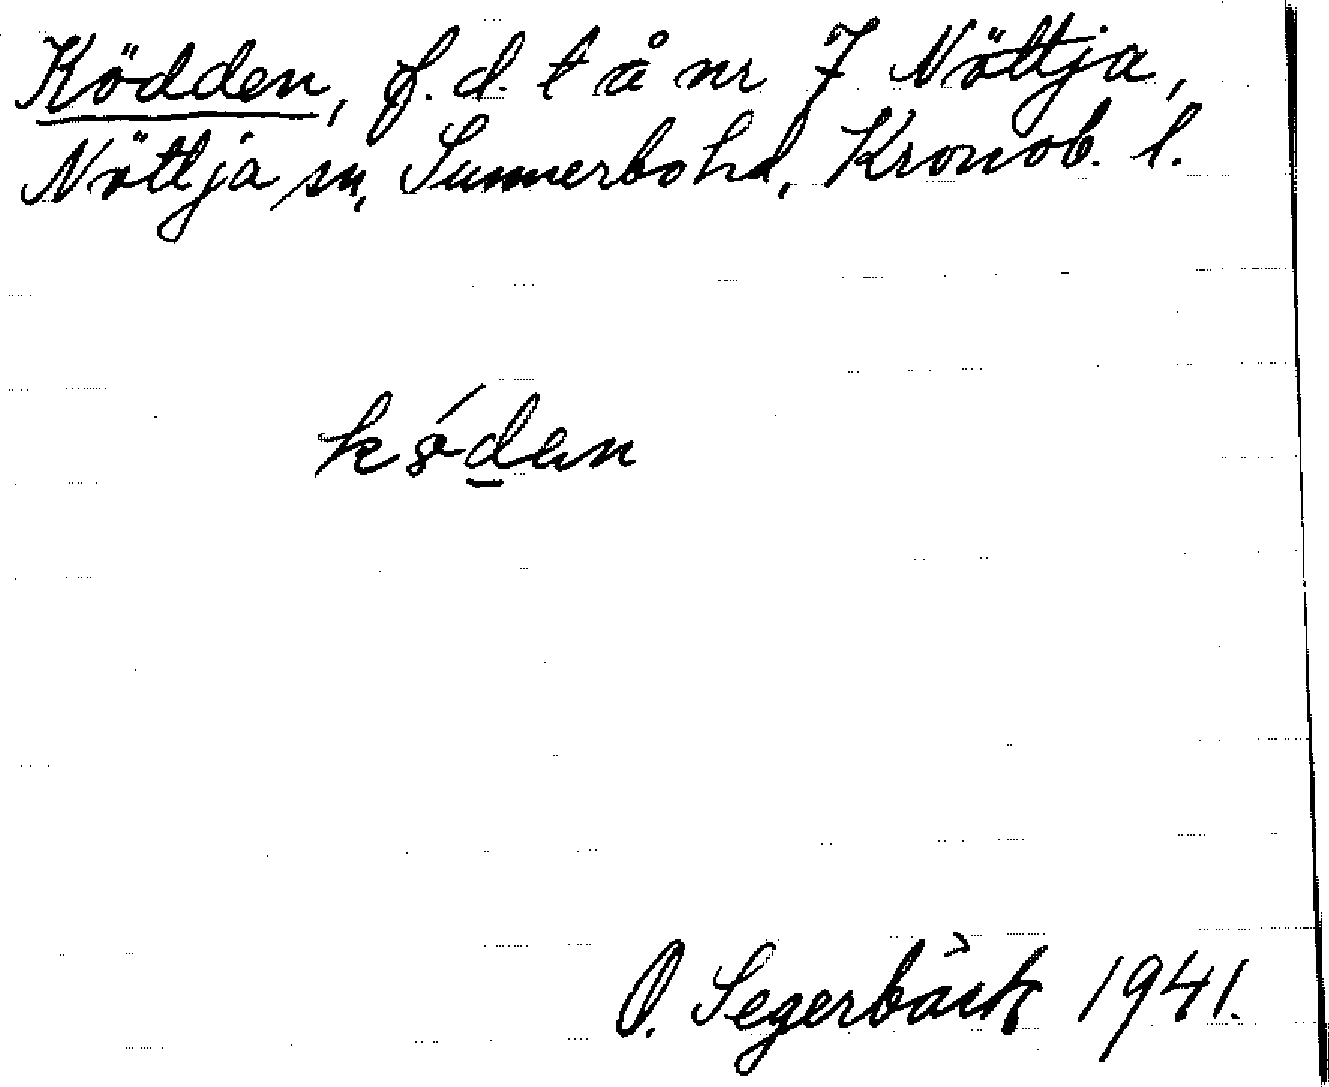 Ködden, f. d. t å nr 7 Nöttja,
Nöttja sn, Sunnerbo hd, Kronob. l.
kǿdan
O. Segerbäck 1941.